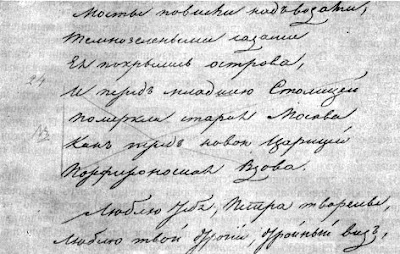 Мосты повисли надъ водами,
Темнозелеными садами
Ея покрылись острова,
И передъ младшею Столицей
Померкла старая Москва
Какъ передъ новою Царицей
Порфироносная Вдова.
Люблю тебя, Петра творенье,
Люблю твой строгій, стройный видъ,